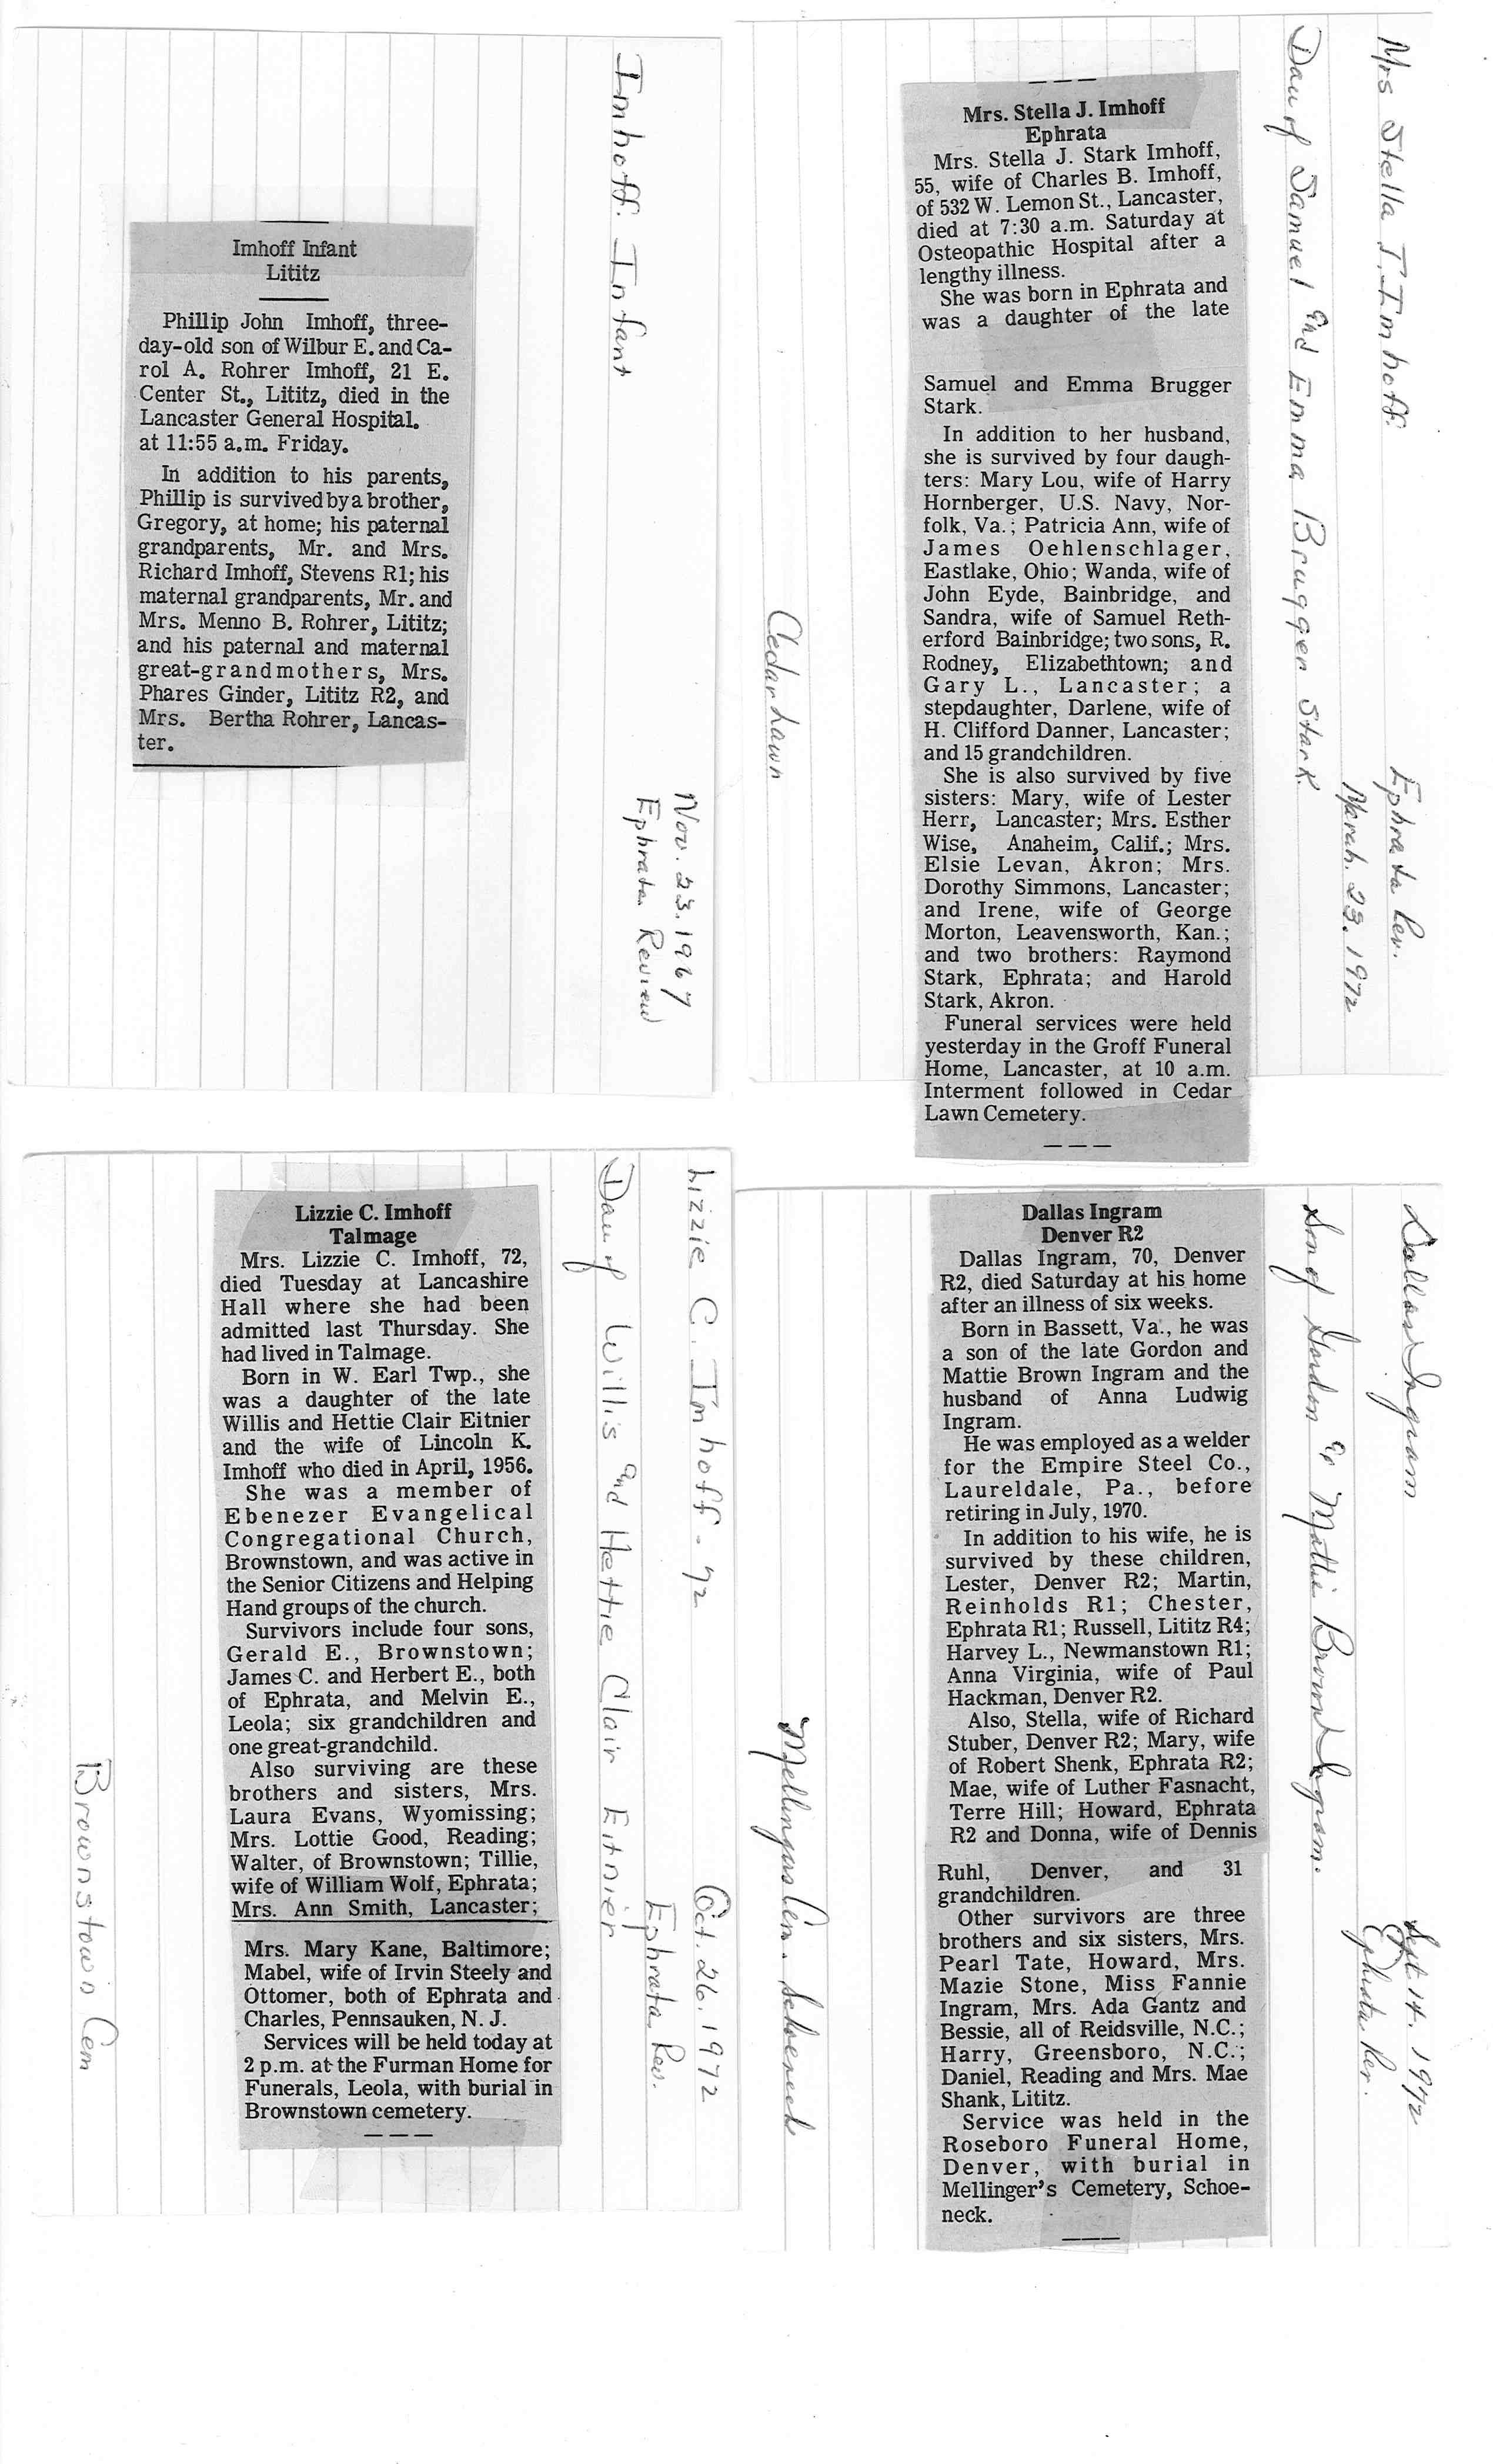 Imhoff. Infant
Nov. 23. 1967
Ephrata Review
Imhoff Infant
Lititz
Phillip John Imhoff, three-
day-old son of Wilbur E. and Ca-
rol A. Rohrer Imhoff, 21 E.
Center St., Lititz, died in the
Lancaster General Hospital.
at 11:55 a.m. Friday.
In addition to his parents,
Phillip is survived by a brother,
Gregory, at home; his paternal
grandparents, Mr. and Mrs.
Richard Imhoff, Stevens R1; his
maternal grandparents, Mr. and
Mrs. Menno B. Rohrer, Lititz;
and his paternal and maternal
great-grandmothers, Mrs.
Phares Ginder, Lititz R2, and
Mrs. Bertha Rohrer, Lancas-
ter.
Mrs Stella J. Imhoff.
Ephrata Rev.
March. 23. 1972
Dau of Samuel and Emma Brugger Stark
Mrs. Stella J. Imhoff
Ephrata
Mrs. Stella J. Stark Imhoff,
55, wife of Charles B. Imhoff,
of 532 W. Lemon St., Lancaster,
died at 7:30 a.m. Saturday at
Osteopathic Hospital after a
lengthy illness.
She was born in Ephrata and
was a daughter of the late
Samuel and Emma Brugger
Stark.
In addition to her husband,
she is survived by four daugh-
ters: Mary Lou, wife of Harry
Hornberger, U.S. Navy, Nor-
folk, Va.; Patricia Ann, wife of
James Oehlenschlager,
Eastlake, Ohio; Wanda, wife of
John Eyde, Bainbridge, and
Sandra, wife of Samuel Reth-
erford Bainbridge; two sons, R.
Rodney, Elizabethtown; and
Gary L., Lancaster; a
stepdaughter, Darlene, wife of
H. Clifford Danner, Lancaster;
and 15 grandchildren.
She is also survived by five
sisters: Mary, wife of Lester
Herr, Lancaster; Mrs. Esther
Wise, Anaheim, Calif.; Mrs.
Elsie Levan, Akron; Mrs.
Dorothy Simmons, Lancaster;
and Irene, wife of George
Morton, Leavensworth, Kan.;
and two brothers: Raymond
Stark, Ephrata; and Harold
Stark, Akron.
Funeral services were held
yesterday in the Groff Funeral
Home, Lancaster, at 10 a.m.
Interment followed in Cedar
Lawn Cemetery.
Cedar Lawn
Lizzie C. Imhoff - 72
Oct. 26. 1972
Ephrata, Rev.
Dau of Willis and Hettie Clair Eitnier
Lizzie C. Imhoff
Talmage
Mrs. Lizzie C. Imhoff, 72,
died Tuesday at Lancashire
Hall where she had been
admitted last Thursday. She
had lived in Talmage.
Born in W. Earl Twp., she
was a daughter of the late
Willis and Hettie Clair Eitnier
and the wife of Lincoln K.
Imhoff who died in April, 1956.
She was a member of
Ebenezer Evangelical
Congregational Church,
Brownstown, and was active in
the Senior Citizens and Helping
Hand groups of the church.
Survivors include four sons,
Gerald E., Brownstown;
James C. and Herbert E., both
of Ephrata, and Melvin E.,
Leola; six grandchildren and
one great-grandchild.
Also surviving are these
brothers and sisters, Mrs.
Laura Evans, Wyomissing;
Mrs. Lottie Good, Reading;
Walter, of Brownstown; Tillie,
wife of William Wolf, Ephrata;
Mrs. Ann Smith, Lancaster;
Mrs. Mary Kane, Baltimore;
Mabel, wife of Irvin Steely and
Ottomer, both of Ephrata and
Charles, Pennsauken, N. J.
Services will be held today at
2 p.m. at the Furman Home for
Funerals, Leola, with burial in
Brownstown cemetery.
Brownstown Cem
Dallas Ingram
Sept. 14. 1972
Ephrata, Rev.
Son of Gordon & Mattie Brown Ingram.
Dallas Ingram
Denver R2
Dallas Ingram, 70, Denver
R2, died Saturday at his home
after an illness of six weeks.
Born in Bassett, Va., he was
a son of the late Gordon and
Mattie Brown Ingram and the
husband of Anna Ludwig
Ingram.
He was employed as a welder
for the Empire Steel Co.,
Laureldale, Pa., before
retiring in July, 1970.
In addition to his wife, he is
survived by these children,
Lester, Denver R2; Martin,
Reinholds R1; Chester,
Ephrata R1; Russell, Lititz R4;
Harvey L., Newmanstown R1;
Anna Virginia, wife of Paul
Hackman, Denver R2.
Also, Stella, wife of Richard
Stuber, Denver R2; Mary, wife
of Robert Shenk, Ephrata R2;
Mae, wife of Luther Fasnacht,
Terre Hill; Howard, Ephrata
R2 and Donna, wife of Dennis
Ruhl, Denver, and 31
grandchildren.
Other survivors are three
brothers and six sisters, Mrs.
Pearl Tate, Howard, Mrs.
Mazie Stone, Miss Fannie
Ingram, Mrs. Ada Gantz and
Bessie, all of Reidsville, N.C.;
Harry, Greensboro, N.C.;
Daniel, Reading and Mrs. Mae
Shank, Lititz.
Service was held in the
Roseboro Funeral Home,
Denver, with burial in
Mellinger's Cemetery, Schoe-
neck.
Mellingers Cem. Schoeneck